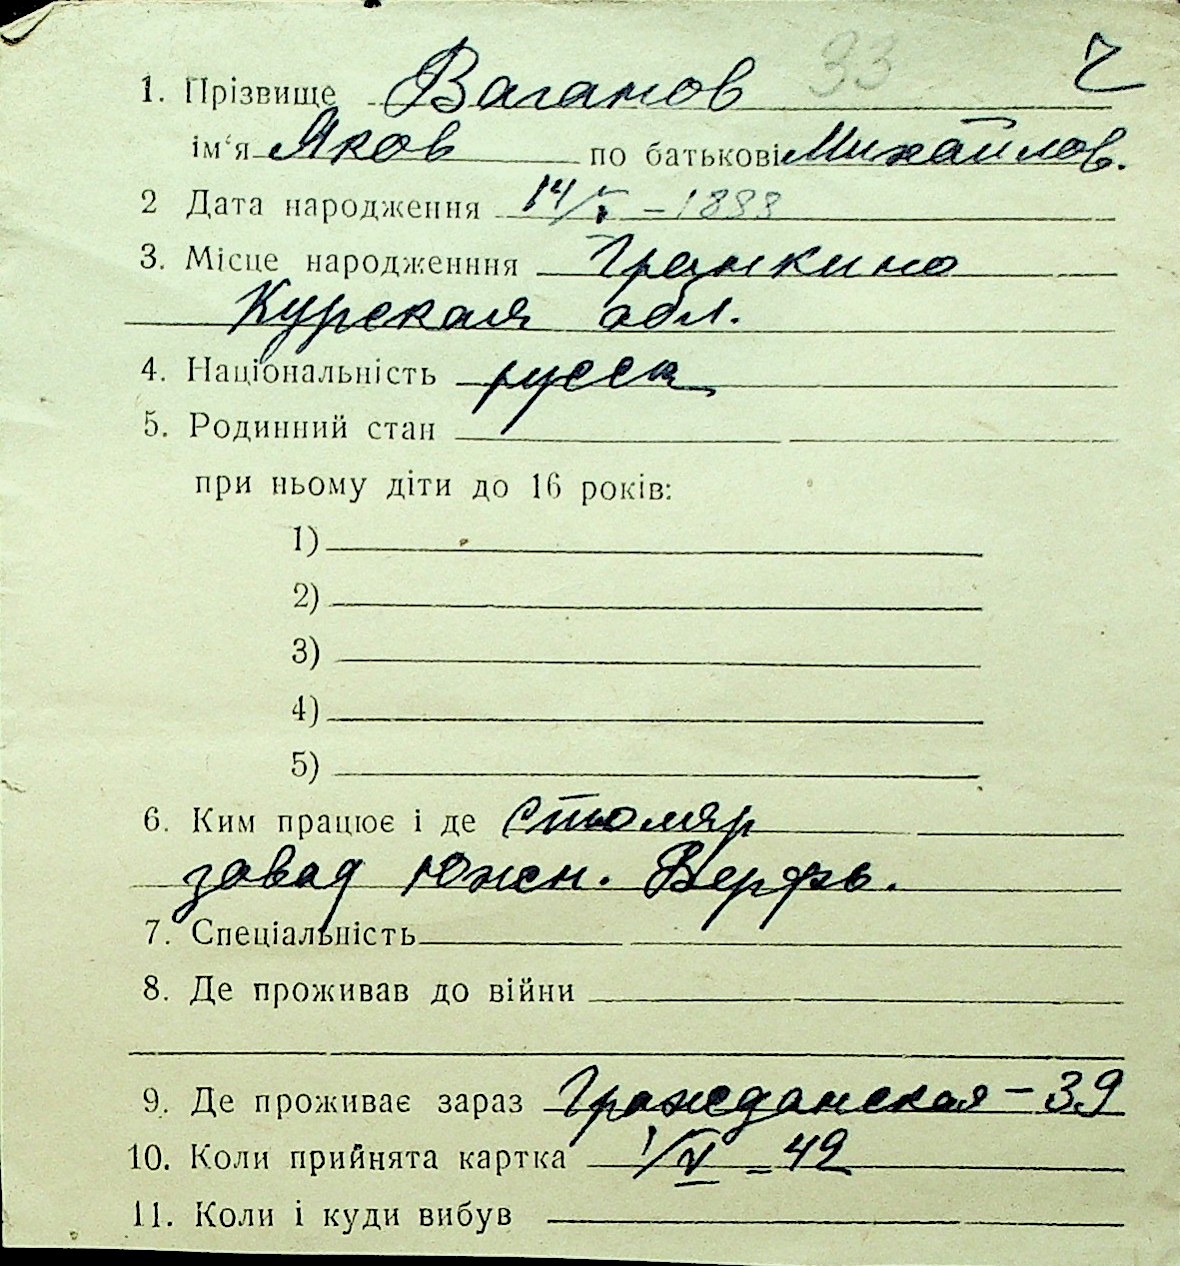 93 Ч
1. Прізвище Ваганов
ім'я Яков по батькові Михайлов.
2 Дата народження 14/V – 1888
3. Місце народженння Гранкино
Курская обл.
4. Національність русск
5. Родинний стан
при ньому діти до 16 років:
1)
2)
3)
4)
5)
6. Ким працює і де столяр
завод Южн. Верфь.
7. Спеціальність
8. Де проживав до війни
9. Де проживає зараз Гражданская – 39
10. Коли прийнята картка 1/V – 42
11. Коли і куди вибув